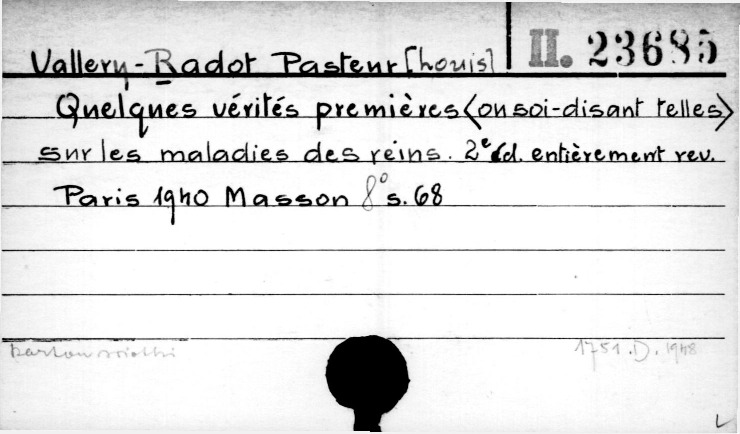 Vallery-Radot Pasteur [Louis] II. 23685
Quelques vérités premières <ou soi-disant telles>
sur les maladies des reins. 2e éd. entièrement rev.
Paris 1940 Masson 8° s. 68
1751.D.1948
L